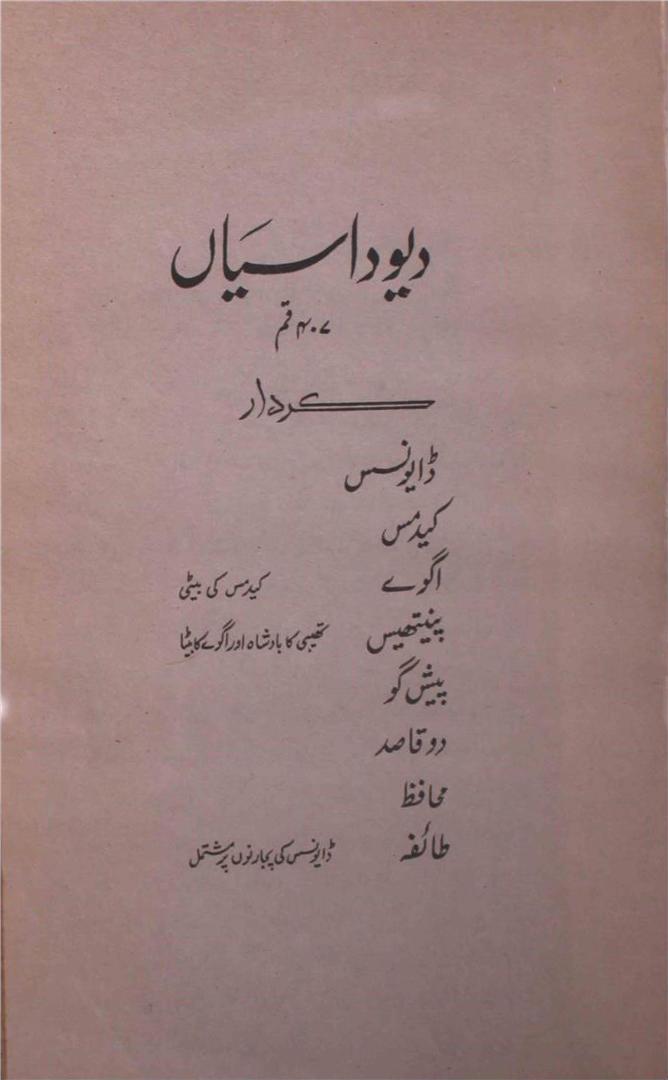 دیوداسیاں
۴۰۷ ق م
کردار
ڈایونسس
کیڈمس
اگوے کیڈمس کی بیٹی
پینتھیس تھیبی کا بادشاہ اور اگوے کا بیٹا
پیش گو
دو قاصد
محافظ
طائفہ ڈایونسس کی پجارنوں پر مشتمل